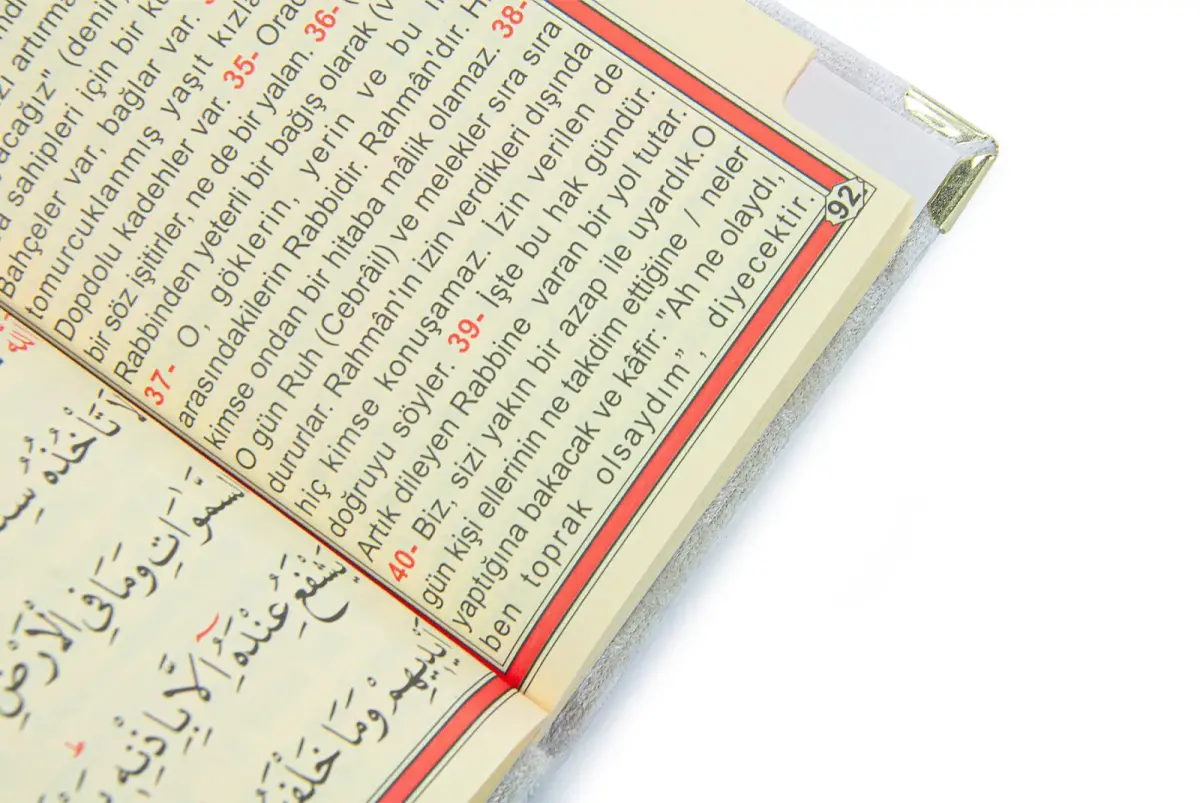 acağız" (denir
sahipleri için bir
Bahçeler var, bağlar var.
tomurcuklanmış yaşıt
Dopdolu kadehler var. 35-
bir söz işitirler, ne de bir yalan. 36-
Rabbinden yeterli bir bağış olarak
37- O, göklerin, yerin ve bu
arasındakilerin Rabbidir. Rahmândır.
kimse ondan bir hitaba mâlik olamaz. 38-
O gün Ruh (Cebrâil) ve melekler sıra sıra
dururlar. Rahmân'ın izin verdikleri dışında
hiç kimse konuşamaz. İzin verilen de
doğruyu söyler. 39- İşte bu hak gündür.
Artık dileyen Rabbine varan bir yol tutar.
40- Biz, sizi yakın bir azap ile uyardık.O
gün kişi ellerinin ne takdim ettiğine / neler
yaptığına bakacak ve kâfir: "Ah ne olaydı,
ben toprak olsaydım”, diyecektir.
92
لَا تَأْخُذُهُ
السَّمٰوَاتِ وَمَا فِي الْاَرْضِ
يَشْفَعُ عِنْدَهُٓ اِلَّا بِاِذْنِه۪
اَيْد۪يهِمْ وَمَا